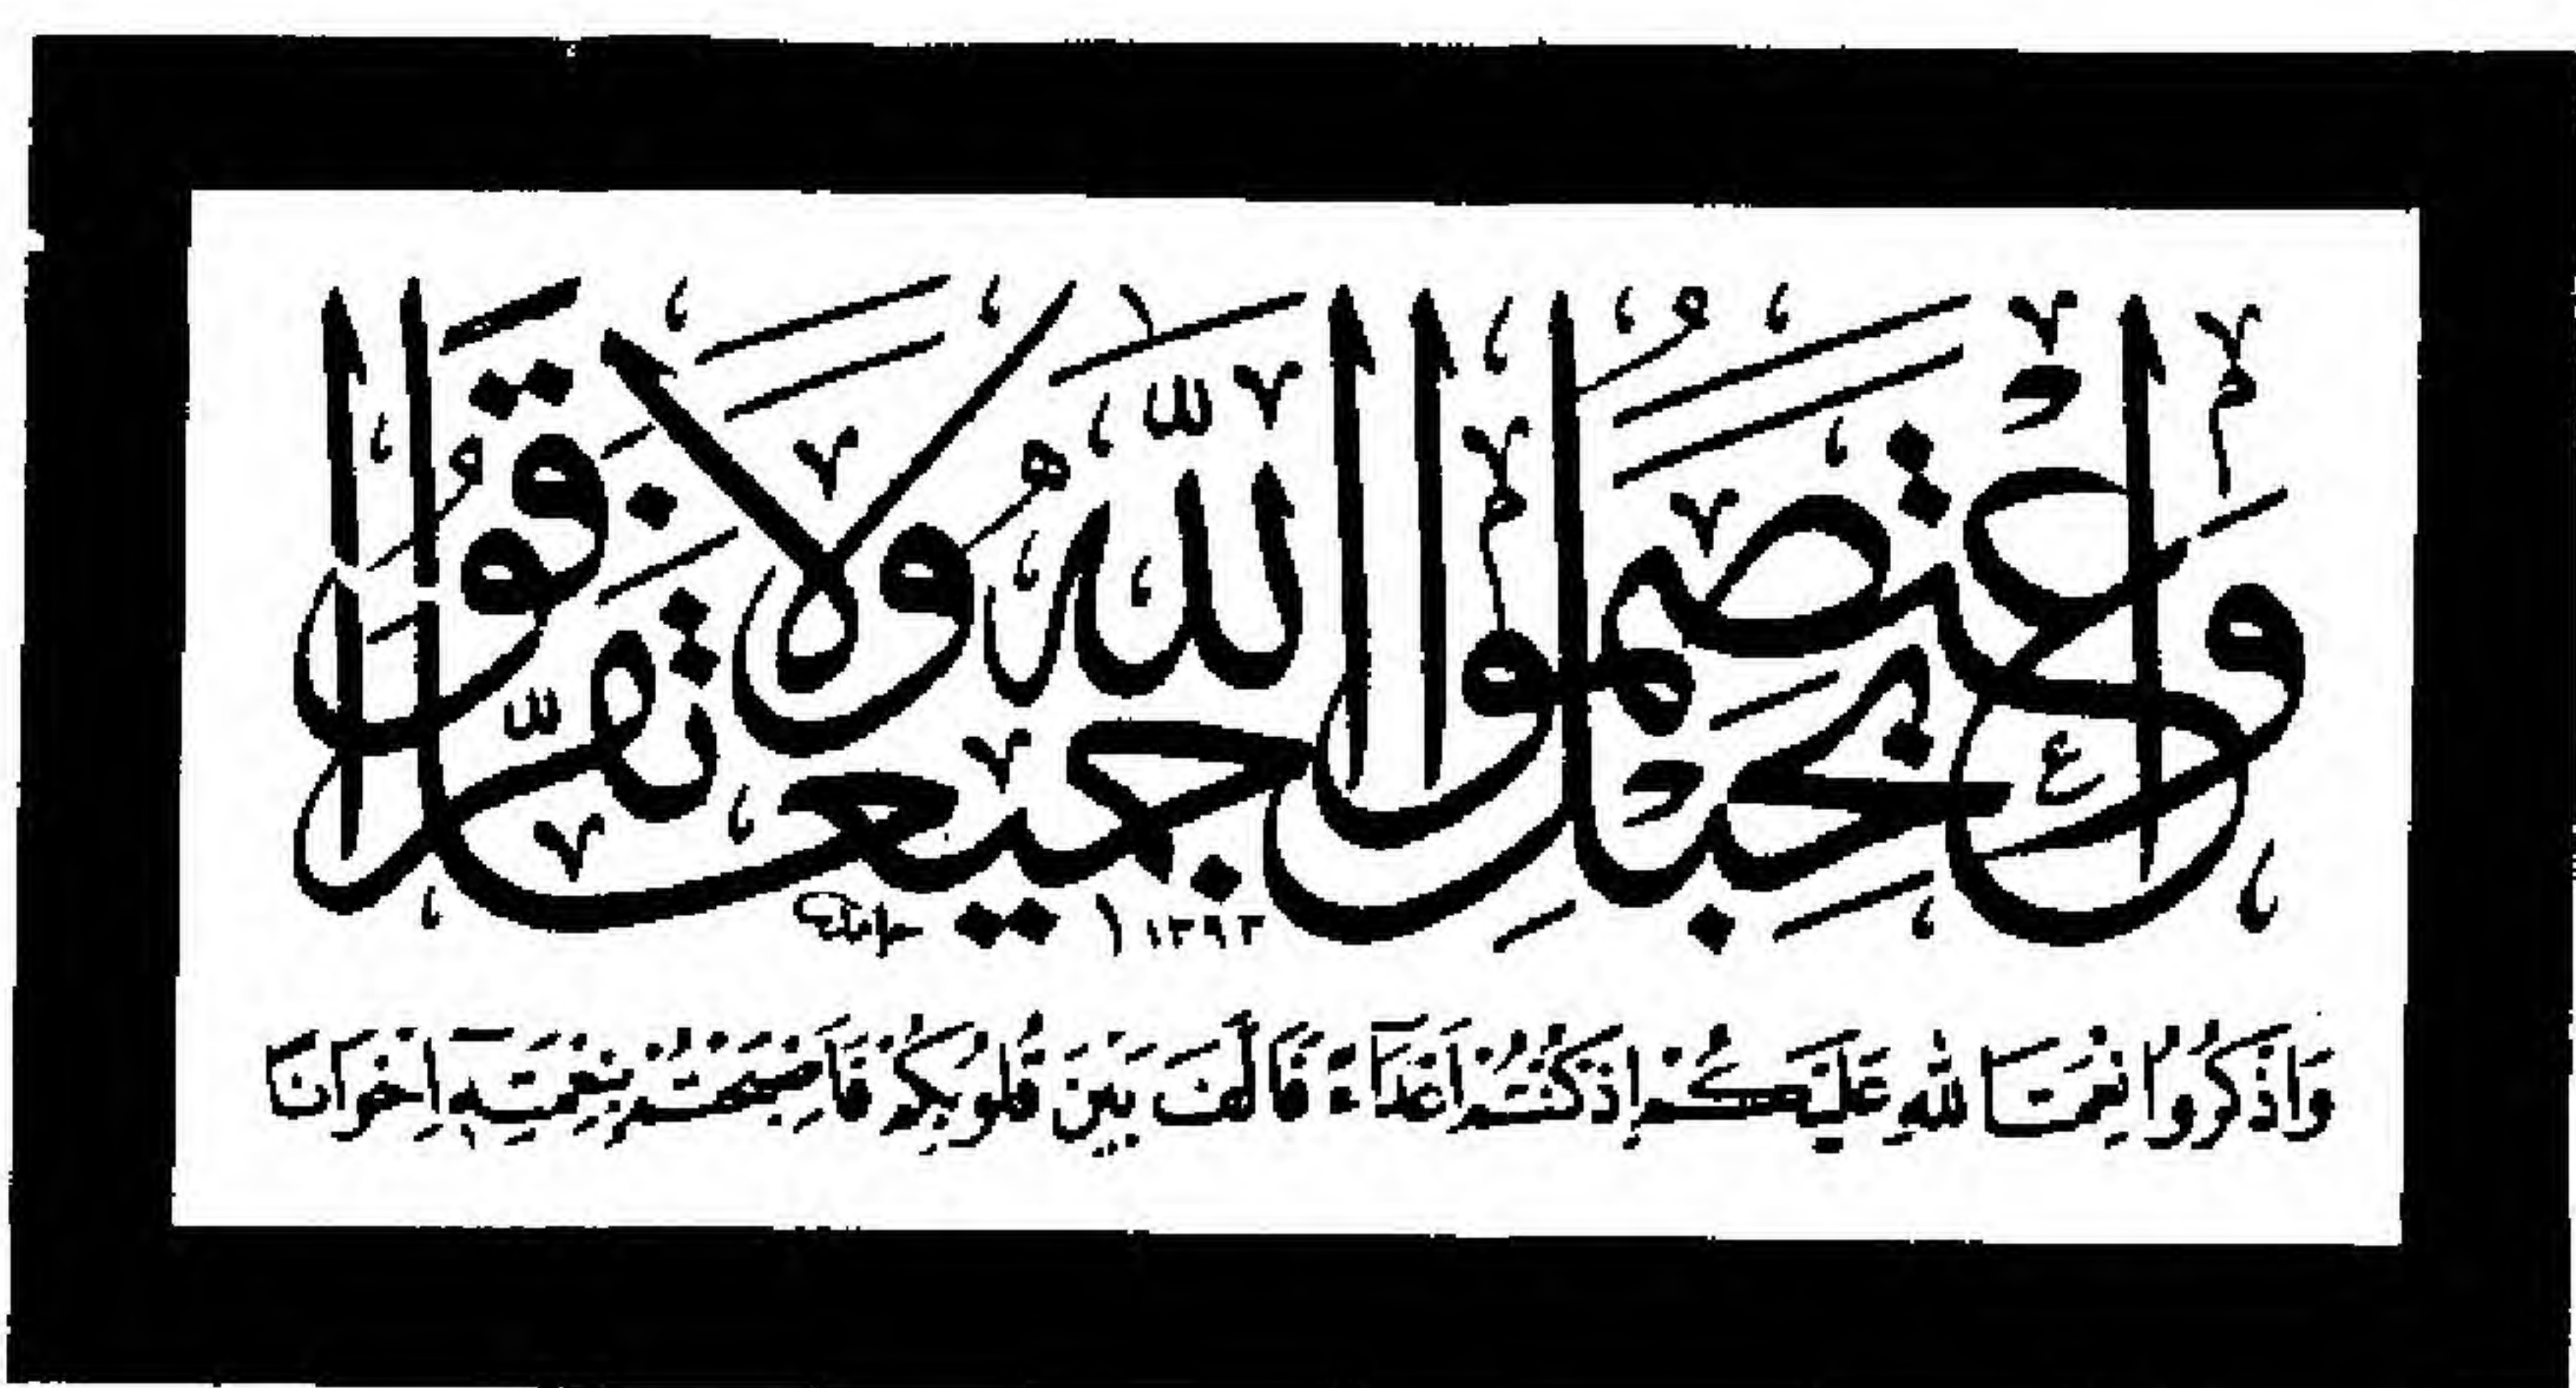 واعتصموا بحبل الله جميعا ولا تفرقوا
١٣٩٣
وَاذْكُرُوا نِعْمَتَ اللهِ عَلَيْكُمْ إِذْ كُنْتُمْ أَعْدَآءً فَأَلَّفَ بَيْنَ قُلُوبِكُمْ فَأَصْبَحْتُمْ بِنِعْمَتِهٖٓ إِخْوَانًا